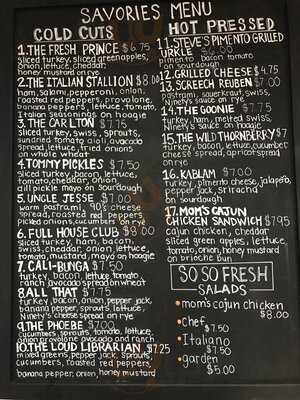 SAVORIES MENU
COLD CUTS
1. THE FRESH PRINCE $6.75
sliced turkey, sliced green apples,
onion, lettuce, cheddar,
honey mustard on rye
2. THE ITALIAN STALLION $8.00
ham, salami, pepperoni, onion,
roasted red peppers, provolone,
banana peppers, lettuce, tomato,
Italian seasonings on hoagie
3. THE CARLTON $7.75
sliced turkey, swiss, sprouts,
sundried tomato aioli, avocado
spread, lettuce, fried onions
on whole wheat
4. TOMMY PICKLES $7.50
sliced turkey, bacon, lettuce,
tomato, cheddar, onion,
dill pickle mayo on sourdough
5. UNCLE JESSE $7.00
warm pastrami, 90s cheese
spread, roasted red peppers
pickled onions, cucumbers on rye
6. FULL HOUSE CLUB $8.00
sliced turkey, ham, bacon,
swiss, cheddar, onion, lettuce,
tomato, mustard, mayo on hoagie
7. CALI-BUNGA $7.50
turkey, bacon, lettuce, tomato,
ranch, avocado spread on wheat
8. ALL THAT $7.75
turkey, bacon, onion, pepper jack,
banana pepper, sprouts, lettuce,
Ninety's cheese spread on rye
9. THE PHOEBE $7.00
cucumbers, sprouts, tomato, lettuce,
onion, provolone, avocado and ranch
10. THE LOUD LIBRARIAN $7.25
mixed greens, pepper jack, sprouts,
cucumbers, roasted red peppers,
banana pepper, onion, honey mustard
HOT PRESSED
11. STEVE'S PIMENTO GRILLED
URKLE $6.00
pimento bacon tomato
on sourdough
12. GRILLED CHEESE $4.75
13. SCREECH REUBEN $7.00
pastrami, sauerkraut, swiss,
Ninety's sauce on rye
14. THE GOONIE $7.75
turkey, ham, melted swiss,
Ninety's sauce on hoagie
15. THE WILD THORNBERRY $7
turkey, bacon, lettuce, cucumber
cheese spread, apricot spread
on rye
16. KABLAM $7.00
turkey, pimento cheese, jalapeño,
pepper jack, sriracha
on sourdough
17. MOM'S CAJUN
CHICKEN SANDWICH $7.95
cajun chicken, cheddar
sliced green apples, lettuce,
tomato, onion, honey mustard
on brioche bun
SO SO FRESH
SALADS
• mom's cajun chicken
$8.00
• chef
$7.50
• Italiano
$7.50
• garden
$5.00